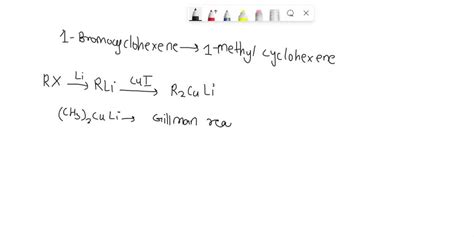 1-Bromocyclohexene → 1-methyl cyclohexene
RX —Li→ RLi —CuI→ R₂CuLi
(CH₃)₂CuLi → Gillman rea